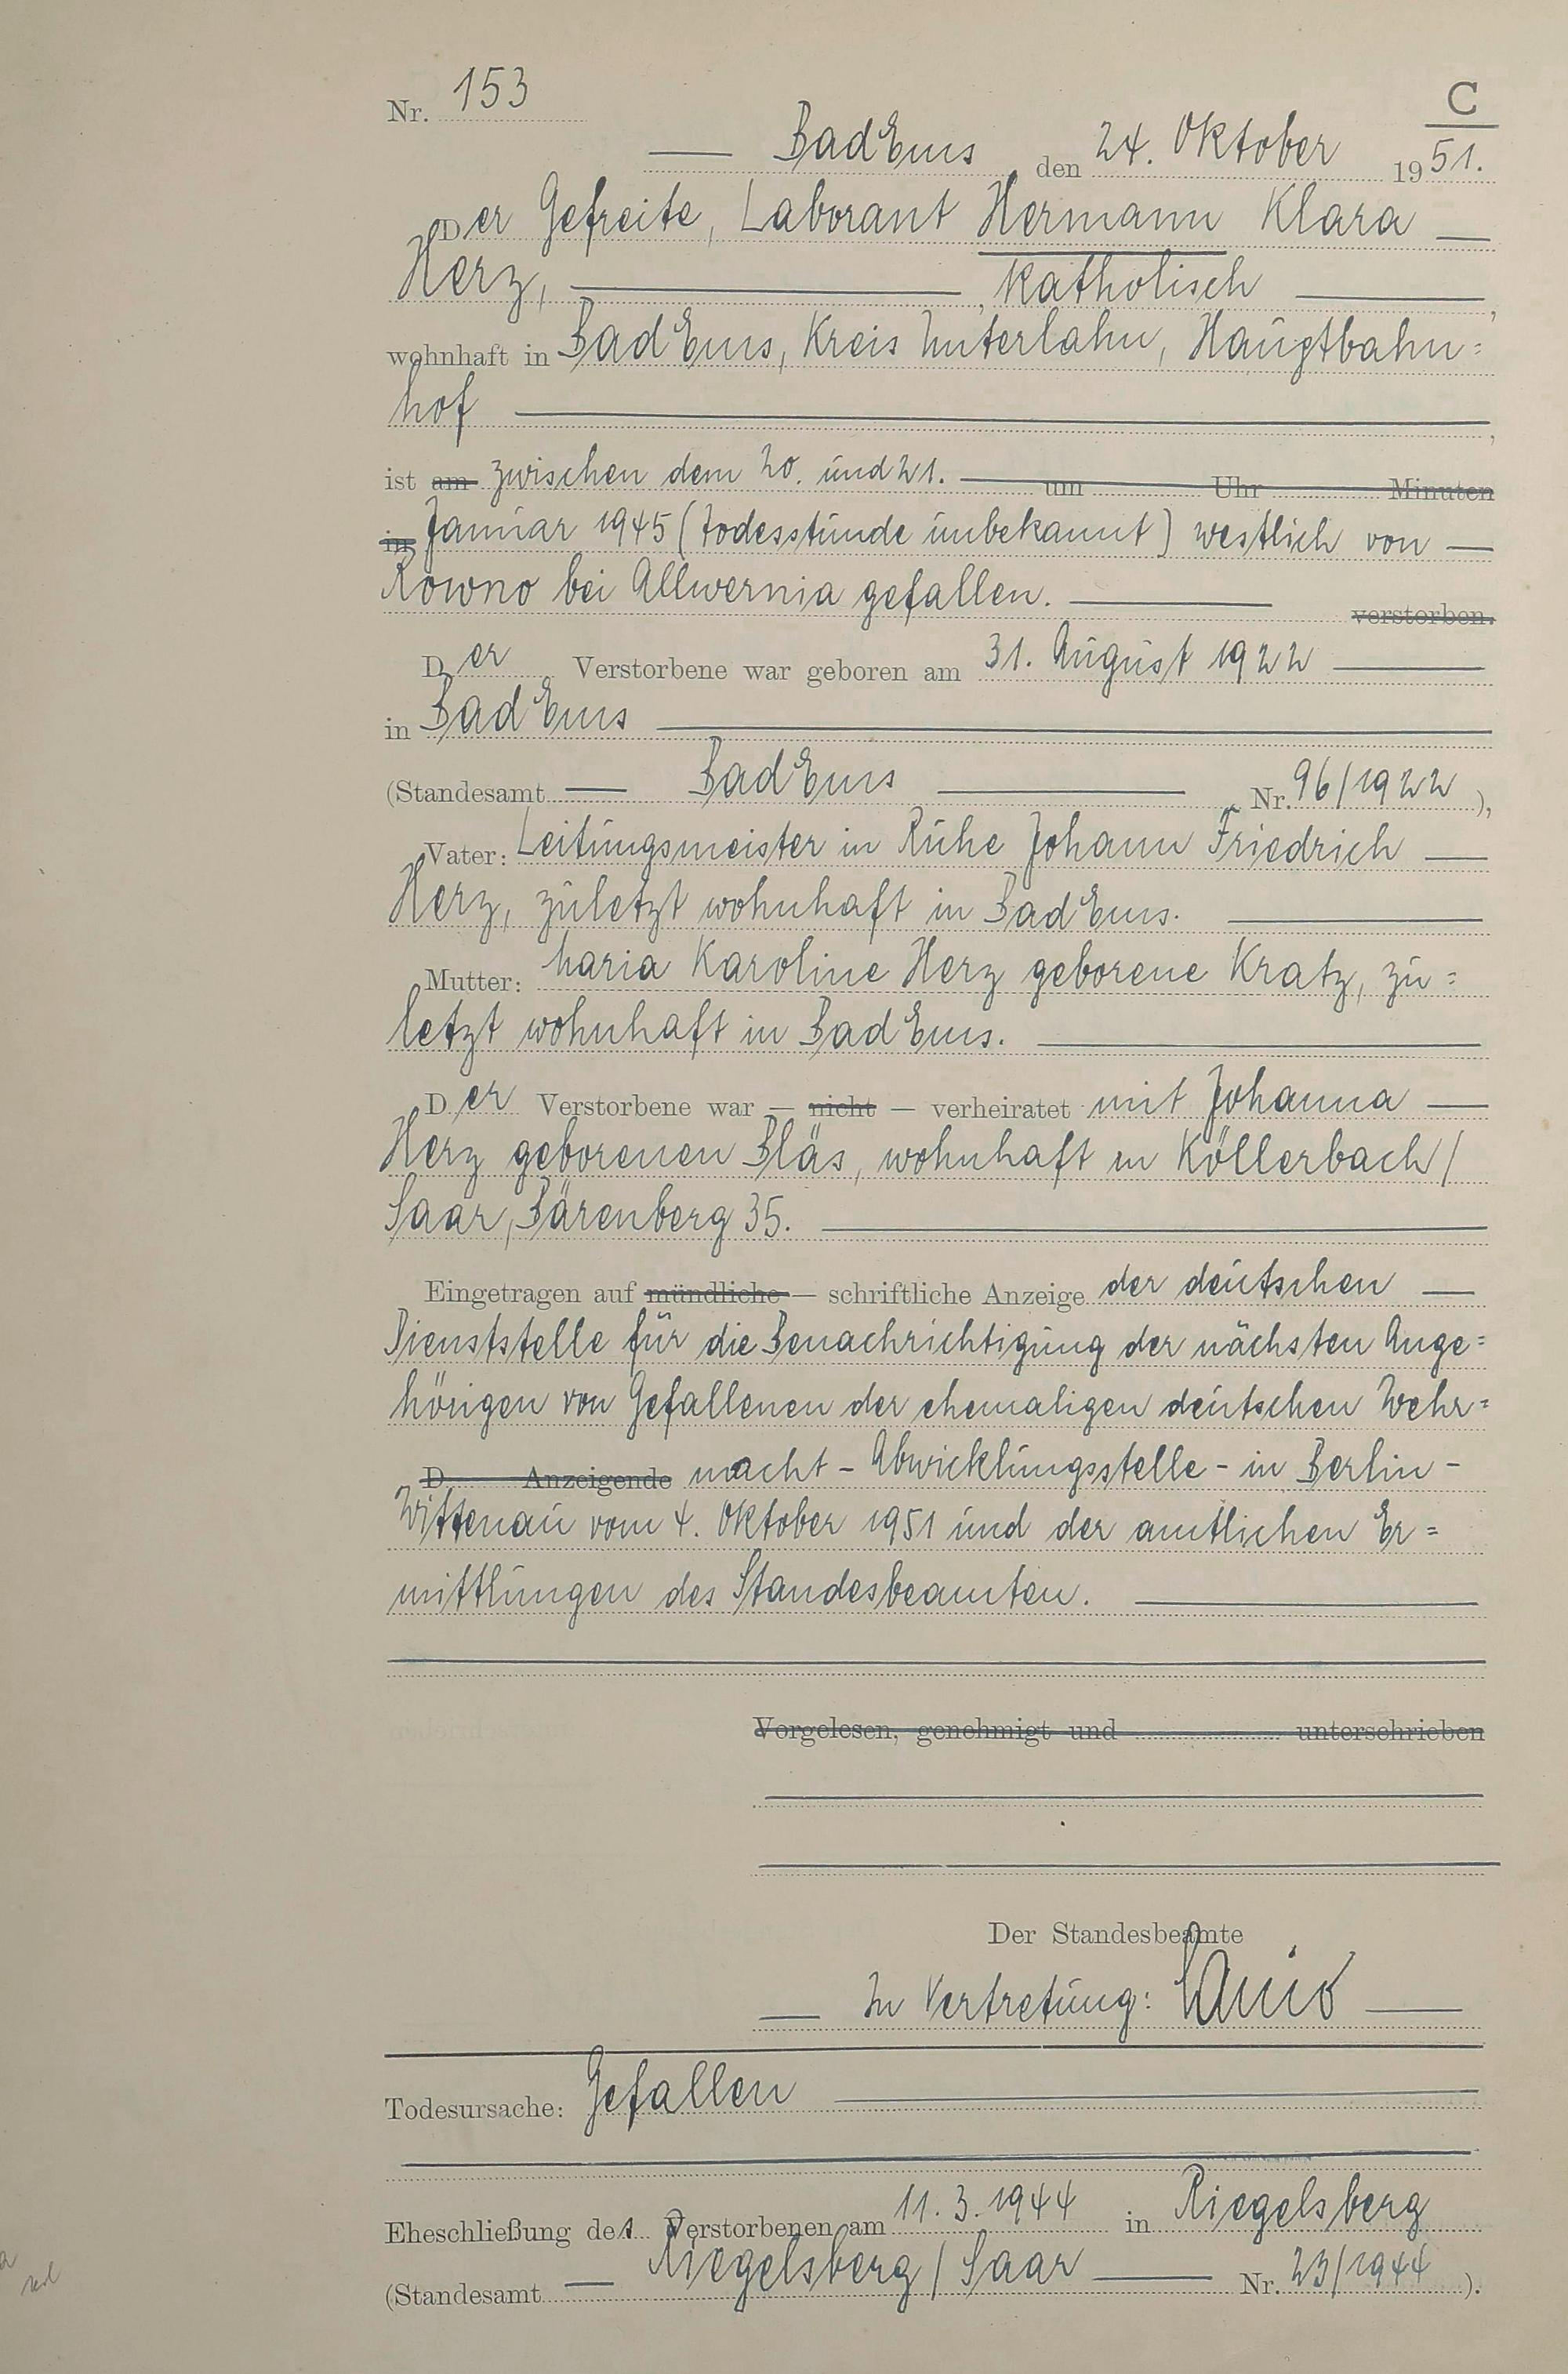 Nr. 153
C
Bad Ems, den 24. Oktober 1951.
Der Gefreite, Laborant Hermann Klara
Herz, katholisch,
wohnhaft in Bad Ems, Kreis Unterlahn, Hauptbahn=
hof,
ist am zwischen dem 20. und 21. um Uhr Minuten
in Januar 1945 (Todesstunde unbekannt) westlich von
Rowno bei Allwernia gefallen. verstorben.
Der Verstorbene war geboren am 31. August 1922
in Bad Ems
(Standesamt Bad Ems Nr. 96/1922),
Vater: Leitungsmeister in Ruhe Johann Friedrich
Herz, zuletzt wohnhaft in Bad Ems.
Mutter: Maria Karoline Herz geborene Kratz, zu=
letzt wohnhaft in Bad Ems.
Der Verstorbene war — nicht — verheiratet mit Johanna
Herz geborenen Bläs, wohnhaft in Köllerbach/
Saar, Bärenberg 35.
Eingetragen auf mündliche — schriftliche Anzeige der deutschen
Dienststelle für die Benachrichtigung der nächsten Ange=
hörigen von Gefallenen der ehemaligen deutschen Wehr=
D Anzeigende macht - Abwicklungsstelle - in Berlin -
Wittenau vom 4. Oktober 1951 und der amtlichen Er=
mittlungen des Standesbeamten.
Vorgelesen, genehmigt und unterschrieben
Der Standesbeamte
In Vertretung:
Todesursache: Gefallen
Eheschließung des Verstorbenen am 11.3.1944 in Riegelsberg
(Standesamt Riegelsberg/Saar Nr. 23/1944).